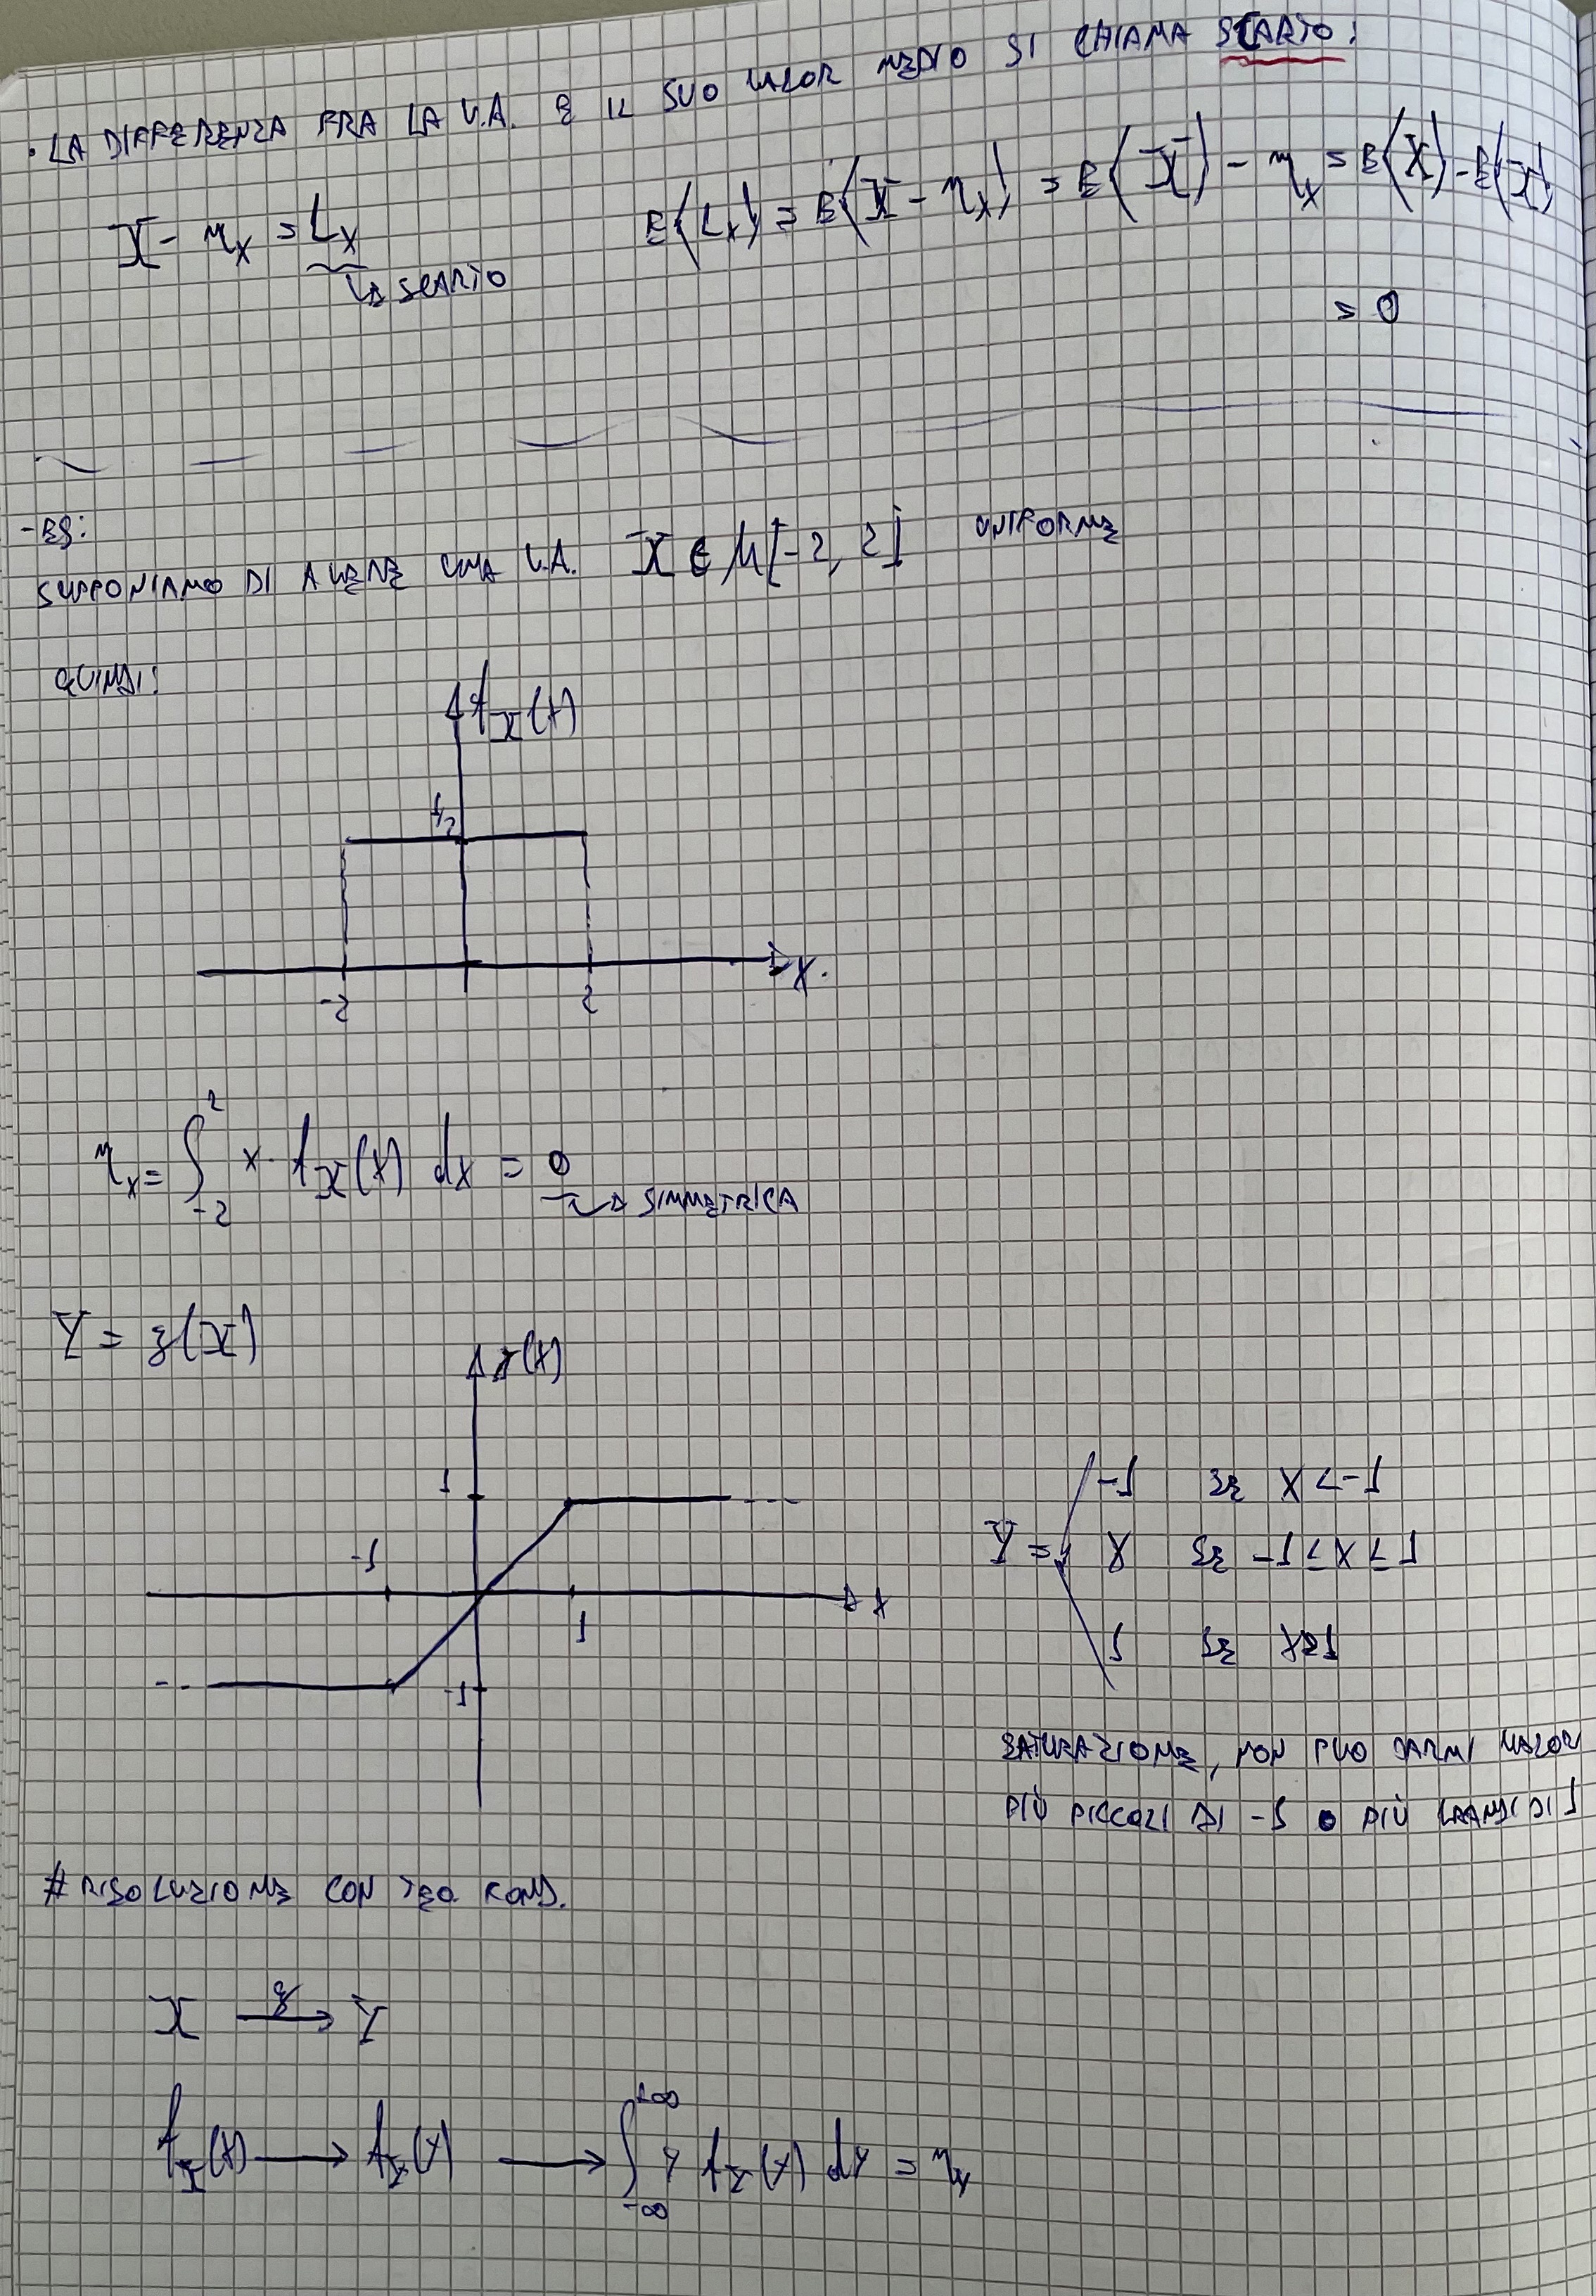 • LA DIFFERENZA FRA LA V.A. E IL SUO VALOR MEDIO SI CHIAMA SCARTO:
X - η_X = L_X E{L_X} = E{X - η_X} = E{X} - η_X = E{X} - E{X}
↳ SCARTO
= 0
- ES:
SUPPONIAMO DI AVERE UNA V.A. X ∈ U[-2, 2] UNIFORME
QUINDI:
f_X(x)
1/2
x
-2 2
η_X = ∫_{-2}^{2} x · f_X(x) dx = 0
↳ SIMMETRICA
Y = g(X)
g(x)
1
-1
x
1
-1
Y = { -1 SE X < -1
X SE -1 ≤ X ≤ 1
1 SE
SATURAZIONE, NON PUO DARMI VALORI
PIÙ PICCOLI DI -1 O PIÙ GRANDI DI 1
# RISOLUZIONE CON TEO. FOND.
X →^g Y
f_X(x) → f_Y(y) → ∫_{-∞}^{+∞} y f_Y(y) dy = η_Y